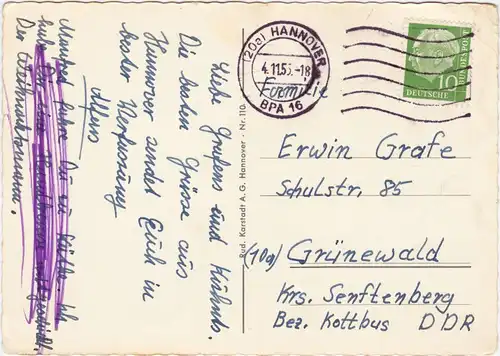 Liebe Grafens und Kühnts.
Die besten Grüsse aus
Hannover sendet Euch in
bester Verfassung
Alfons
Manfred fahre Du zu
Der Weihnachtsmann.
Rud. Karstadt A. G. Hannover - Nr. 110
(20a) HANNOVER
4.11.55.-18
BPA 16
10
DEUTSCHE
BUNDESPOST
Familie
Erwin Grafe
Schulstr. 85
(10a) Grünewald
Krs. Senftenberg
Bez. Kottbus DDR